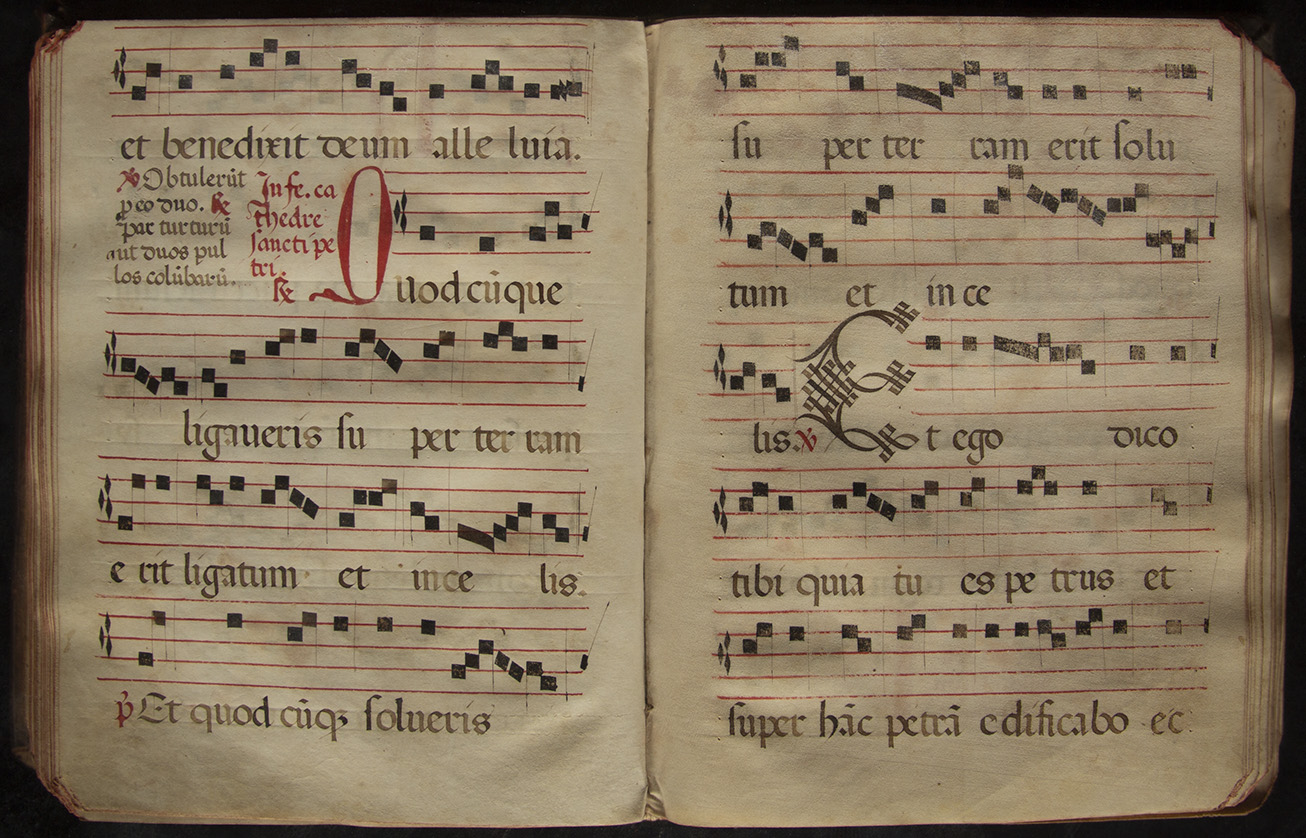 et benedixit deum alle luia.
℣ Obtulerūt
p̱ eo duo. ℟
par turturū
aut duos pul
los colūbarū.
In fe. ca
thedre
sancti pe
tri.
℟
Quodcūque
ligaueris su per ter ram
e rit ligatum et in ce lis.
p̄ Et quod cūqꝫ solueris
su per ter ram erit solu
tum et in ce
lis. ℣ Et ego dico
tibi quia tu es pe trus et
super hāc petrā edificabo ec